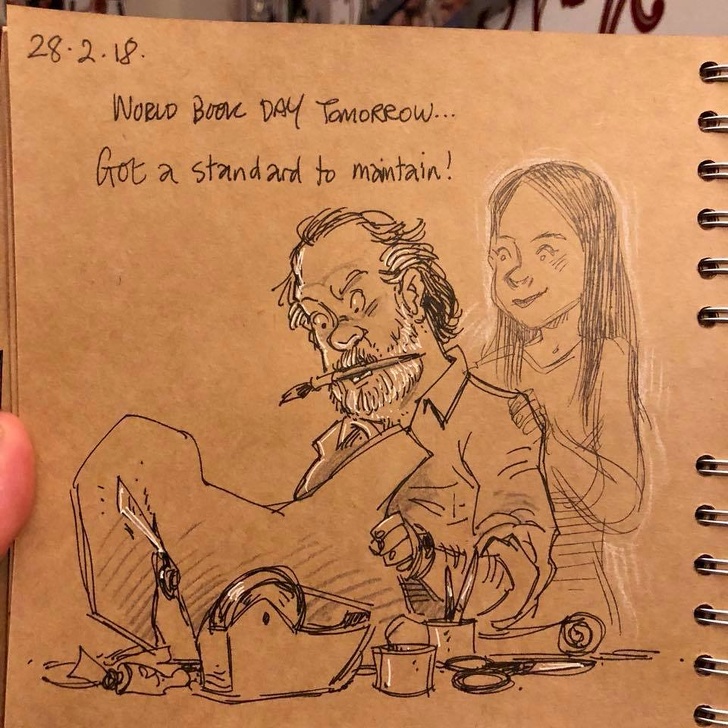 28.2.18.
WORLD BOOK DAY TOMORROW...
Got a standard to maintain!